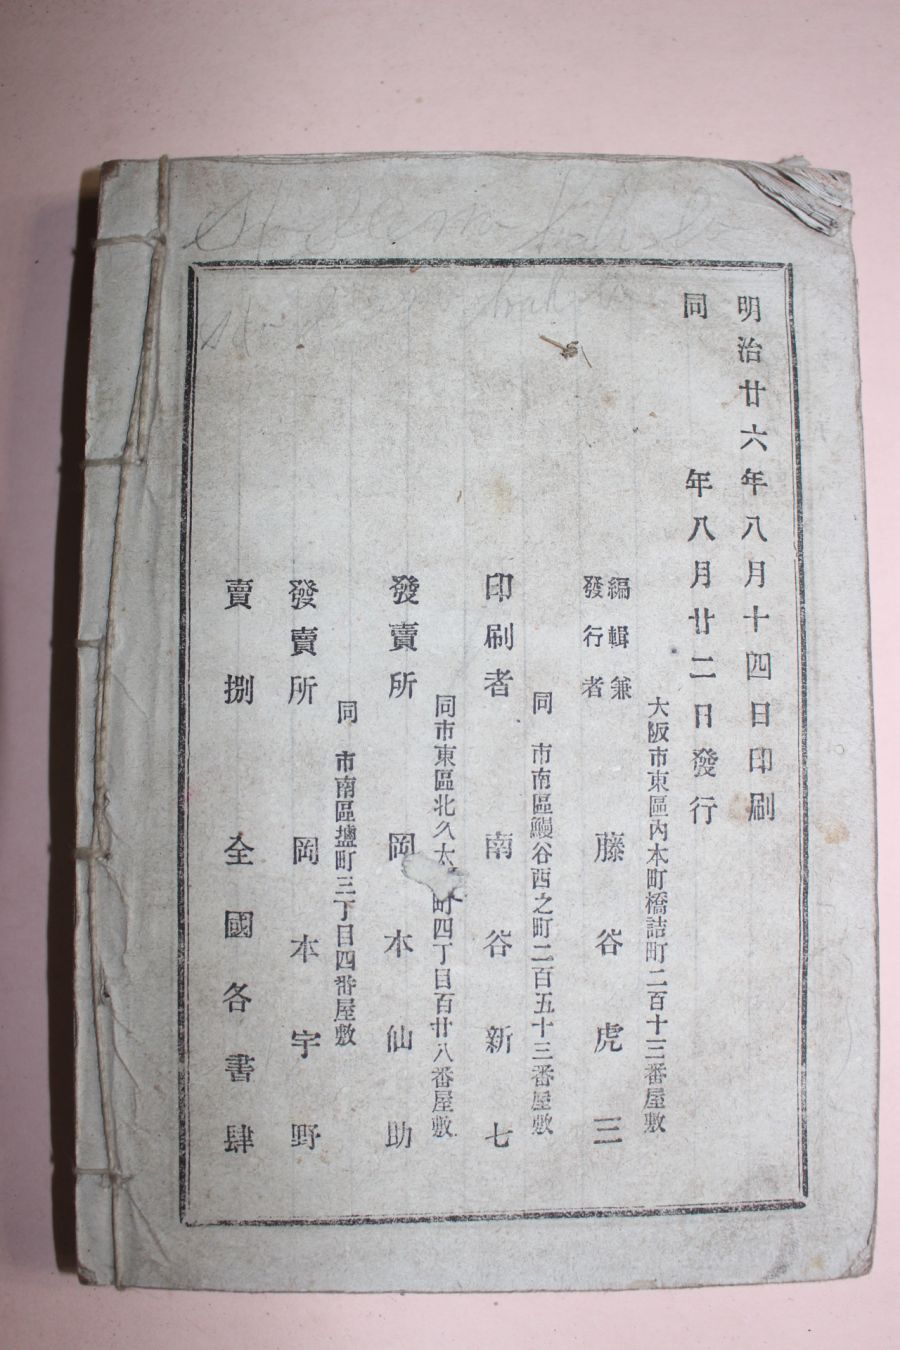 明治廿六年八月十四日印刷
同　　年八月廿二日發行
大阪市東區内本町橋詰町二百十三番屋敷
編輯兼
發行者　藤谷虎三
同　市南區鰻谷西之町二百五十三番屋敷
印刷者　南谷新七
同市東區北久太町四丁目百廿八番屋敷
發賣所　岡本仙助
同　市南區塩町三丁目四番屋敷
發賣所　岡本宇野
賣捌　全國各書肆